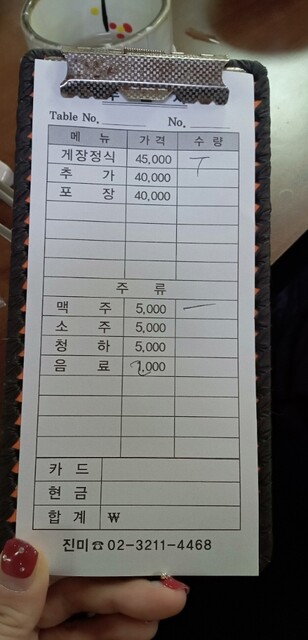 Table No. No.
메 뉴 가 격 수 량
게장정식 45,000 T
추 가 40,000
포 장 40,000
주 류
맥 주 5,000 一
소 주 5,000
청 하 5,000
음 료 000
카 드
현 금
합 계 ₩
진미☎02-3211-4468